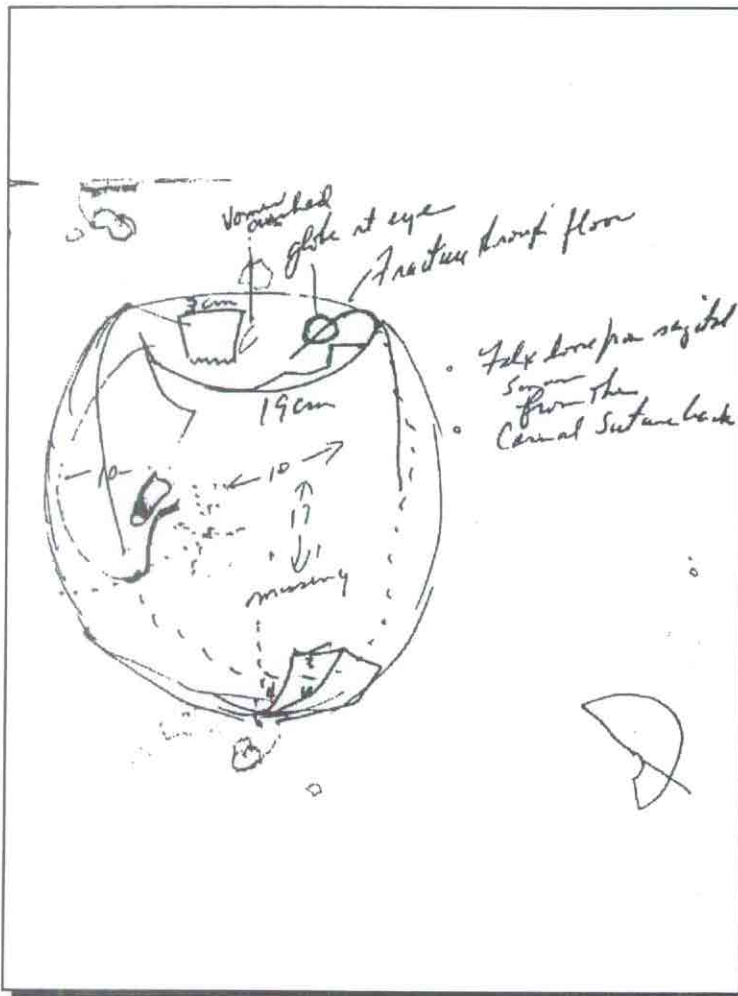 Vomer crushed
globe rt eye
Fracture through floor
3 cm
19 cm
Falx loose from sagital
sinus
from the
Coronal Suture back
10
10
17
missing